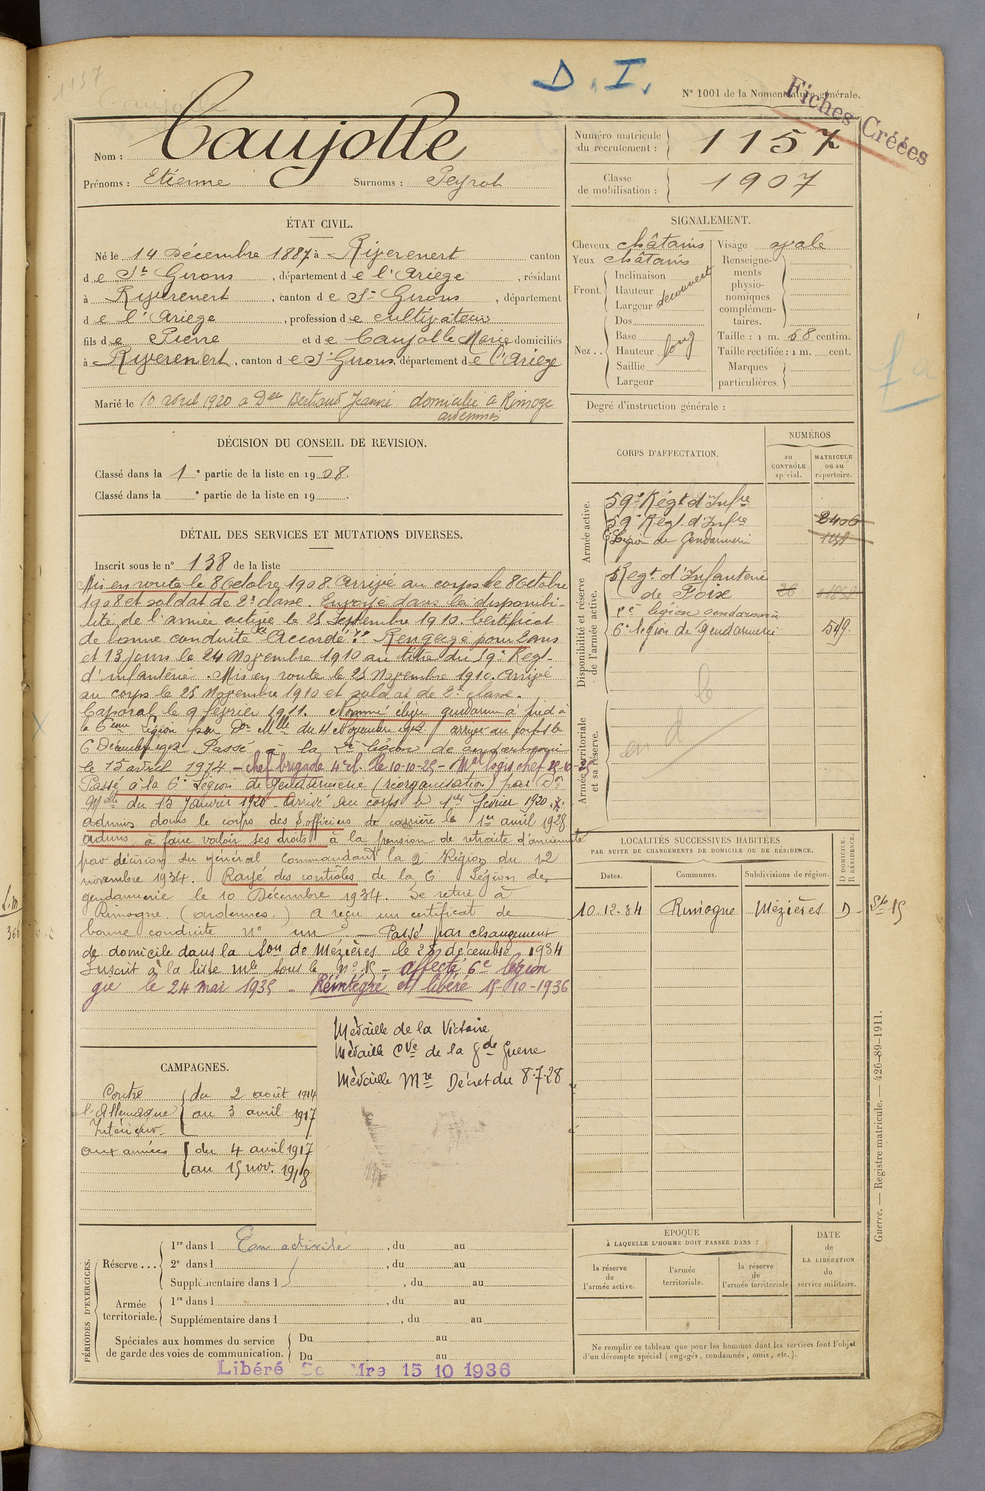 D. I.
N° 1001 de la Nomenclature générale.
Fiches Créées
1157
Nom : Caujolle
Prénoms : Etienne Surnoms : Peyrot
Numéro matricule du recrutement : 1157
Classe de mobilisation : 1907
ÉTAT CIVIL.
Né le 14 Décembre 1887 à Riverenert canton
de St Girons, département de l'Ariège, résidant
à Riverenert, canton de St Girons, département
de l'Ariège, profession de cultivateur
fils de Pierre et de Caujolle Marie domiciliés
à Riverenert, canton de St Girons, département de l'Ariège
Marié le 10 avril 1920 a Delle Bertrand Jeanne domiciliée a Rimogne
ardennes
SIGNALEMENT.
Cheveux châtains
Yeux châtains
Front. Inclinaison
Hauteur
Largeur découvert
Nez.. Dos
Base
Hauteur long
Saillie
Largeur
Visage ovale
Renseignements physionomiques complémentaires.
Taille : 1 m. 58 centim.
Taille rectifiée : 1 m. cent.
Marques particulières.
Degré d'instruction générale :
DÉCISION DU CONSEIL DE REVISION.
Classé dans la 1e partie de la liste en 1908.
Classé dans la e partie de la liste en 19 .
CORPS D'AFFECTATION.
NUMÉROS
au CONTRÔLE spécial.
MATRICULE ou au répertoire.
Armée active.
59e Régt d'Infrie
59e Régt d'Infrie 2406
6e Légion de Gendarmerie
Disponibilité et réserve de l'armée active.
Regt d'Infanterie
de Foix 26
légion gendarmerie
6e légion de Gendarmerie 549
Armée territoriale et sa réserve.
DÉTAIL DES SERVICES ET MUTATIONS DIVERSES.
Inscrit sous le n° 138 de la liste
Mis en route le 8 Octobre 1908. Arrivé au corps le 8 Octobre
1908 et soldat de 2e classe. Envoyé dans la disponibi-
lité de l'armée active le 25 Septembre 1910. Certificat
de bonne conduite "Accordé". Rengagé pour 2 ans
et 13 jours le 24 Novembre 1910 au titre du 59e Régt
d'infanterie. Mis en route le 25 Novembre 1910. Arrivé
au corps le 25 Novembre 1910 et soldat de 2e classe.
Caporal le 9 février 1911. Nommé élève gendarme à pied à
la 6ème Légion par Don Mlle du 4 Novembre 1912 arrivé au corps le
6 Décembre 1912. Passé à la légion de gendarmerie
le 15 avril 1914 – chef brigade 4e cl. le 10-10-25 – Mal logis chef
Passé à la 6e Légion de Gendarmerie (réorganisation) par Don
Mlle du 15 Janvier 1920. Arrivé au corps le 1er février 1920.
admis dans le corps des s/officiers de carrière le 1er avril 1928
admis à faire valoir ses droits à la pension de retraite d'ancienneté
par décision du général commandant la 2 Région du 12
novembre 1934. Rayé des contrôles de la 6 Légion de
gendarmerie le 10 Décembre 1934. Se retire à
Rimogne (ardennes.) A reçu un certificat de
bonne conduite n° un – Passé par changement
de domicile dans la Son de Mézières le 28 décembre 1934
Inscrit à la liste mle sous le n° 15 – affecté 6e légion
gie le 24 mai 1935 – Réintégré et libéré 15-10-1936
Médaille de la Victoire
Médaille Cve de la Gde Guerre
Médaille Mre Décret du 8-7-28
LOCALITÉS SUCCESSIVES HABITÉES
PAR SUITE DE CHANGEMENTS DE DOMICILE OU DE RÉSIDENCE.
Dates. Communes. Subdivisions de région. D domicile. R résidence.
10.12.34 Rimogne Mézières D
CAMPAGNES.
Contre l'Allemagne
Intérieur du 2 août 1914
au 3 avril 1917
aux armées du 4 avril 1917
au 15 nov. 1918
PÉRIODES D'EXERCICES.
Réserve... 1re dans l En activité, du au
2e dans l , du au
Supplémentaire dans l , du au
Armée territoriale. 1re dans l , du au
Supplémentaire dans l , du au
Spéciales aux hommes du service de garde des voies de communication. Du au
Du au
Libéré Mre 15 10 1936
ÉPOQUE
À LAQUELLE L'HOMME DOIT PASSER DANS :
la réserve de l'armée active.
l'armée territoriale.
la réserve de l'armée territoriale
DATE de LA LIBÉRATION du service militaire.
Ne remplir ce tableau que pour les hommes dont les services font l'objet
d'un décompte spécial (engagés, condamnés, omis, etc.).
Guerre. — Registre matricule. — 426-89-1911.